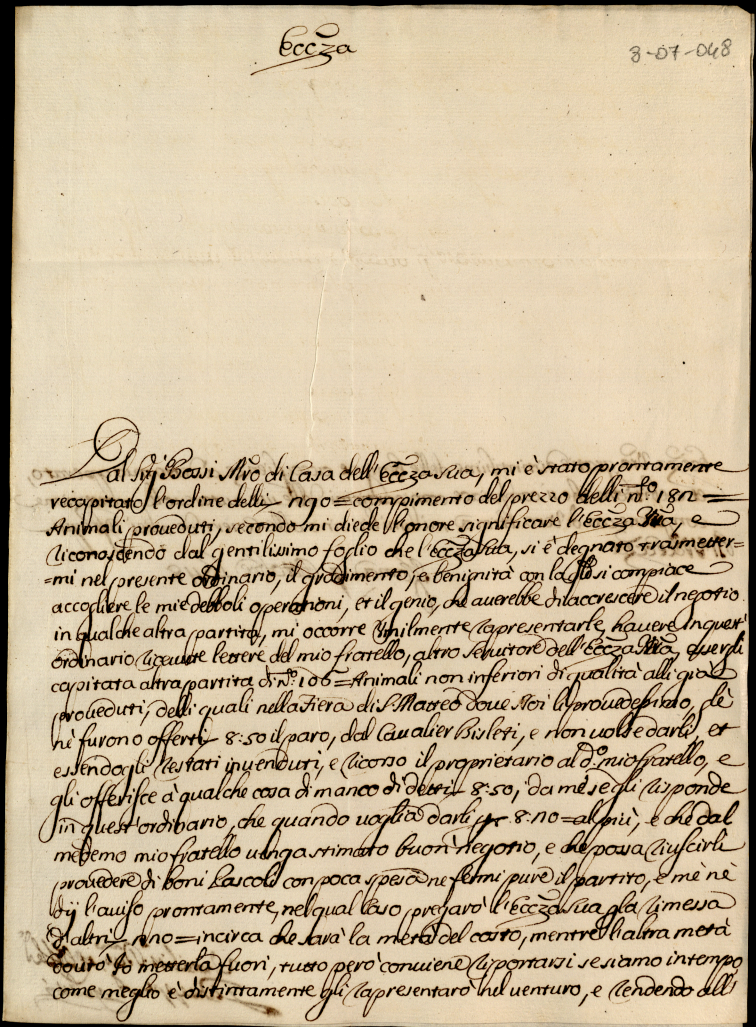 Eccza
3-07-048
Dal Sig.r Bossi Mro di Casa dell'Eccza Sua, mi è stato prontamente
recapitato l'ordine delli compimento del prezzo delli n.o 182 =
Animali proueduti, secondo mi diede l'onore significare l'Eccza Vra, e
riconoscendo dal gentilissimo foglio che l'Eccza Sua, si è degnato trasmetter=
=mi nel presente ordinario, il gradimento, e benignità con la si compiace
accogliere le mie debboli operationi, et il genio, che auerebbe di accrescere il negotio
in qualche altra partita, mi occorre umilmente rapresentarle, hauere in quest'
ordinario riceuute lettere del mio fratello, altro seruitore dell'Eccza Vra, esserli
capitata altra partita di n.o 106 = Animali non inferiori di qualità alli già
proueduti, delli quali nella Fiera di S. Matteo doue Noi li prouedessimo, glè
nè furono offerti 8:50 il paro, dal Caualier Bisleti, e non volse darli, et
essendogli restati inuenduti, e ricorso il proprietario al d.o mio fratello, e
gli offerisce à qualche cosa di manco di detti 8:50, da mè segli risponde
in quest'ordinario, che quando voglia darli al più, e che dal
medemo mio fratello uenga stimato buon negotio, e che possa riuscirli
prouedere di boni Pascoli con poca spesa ne fermi pure il partito, e mè nè
dij l'auiso prontamente, nel qual Caso pregarò l'Eccza Sua p la rimessa
d'altri incirca che sarà la metà del costo, mentre l'altra metà
dourò Io metterla fuori, tutto però conuiene riportarsi se siamo in tempo
come meglio e distintamente gli rapresentarò nel venturo, e rendendo all'